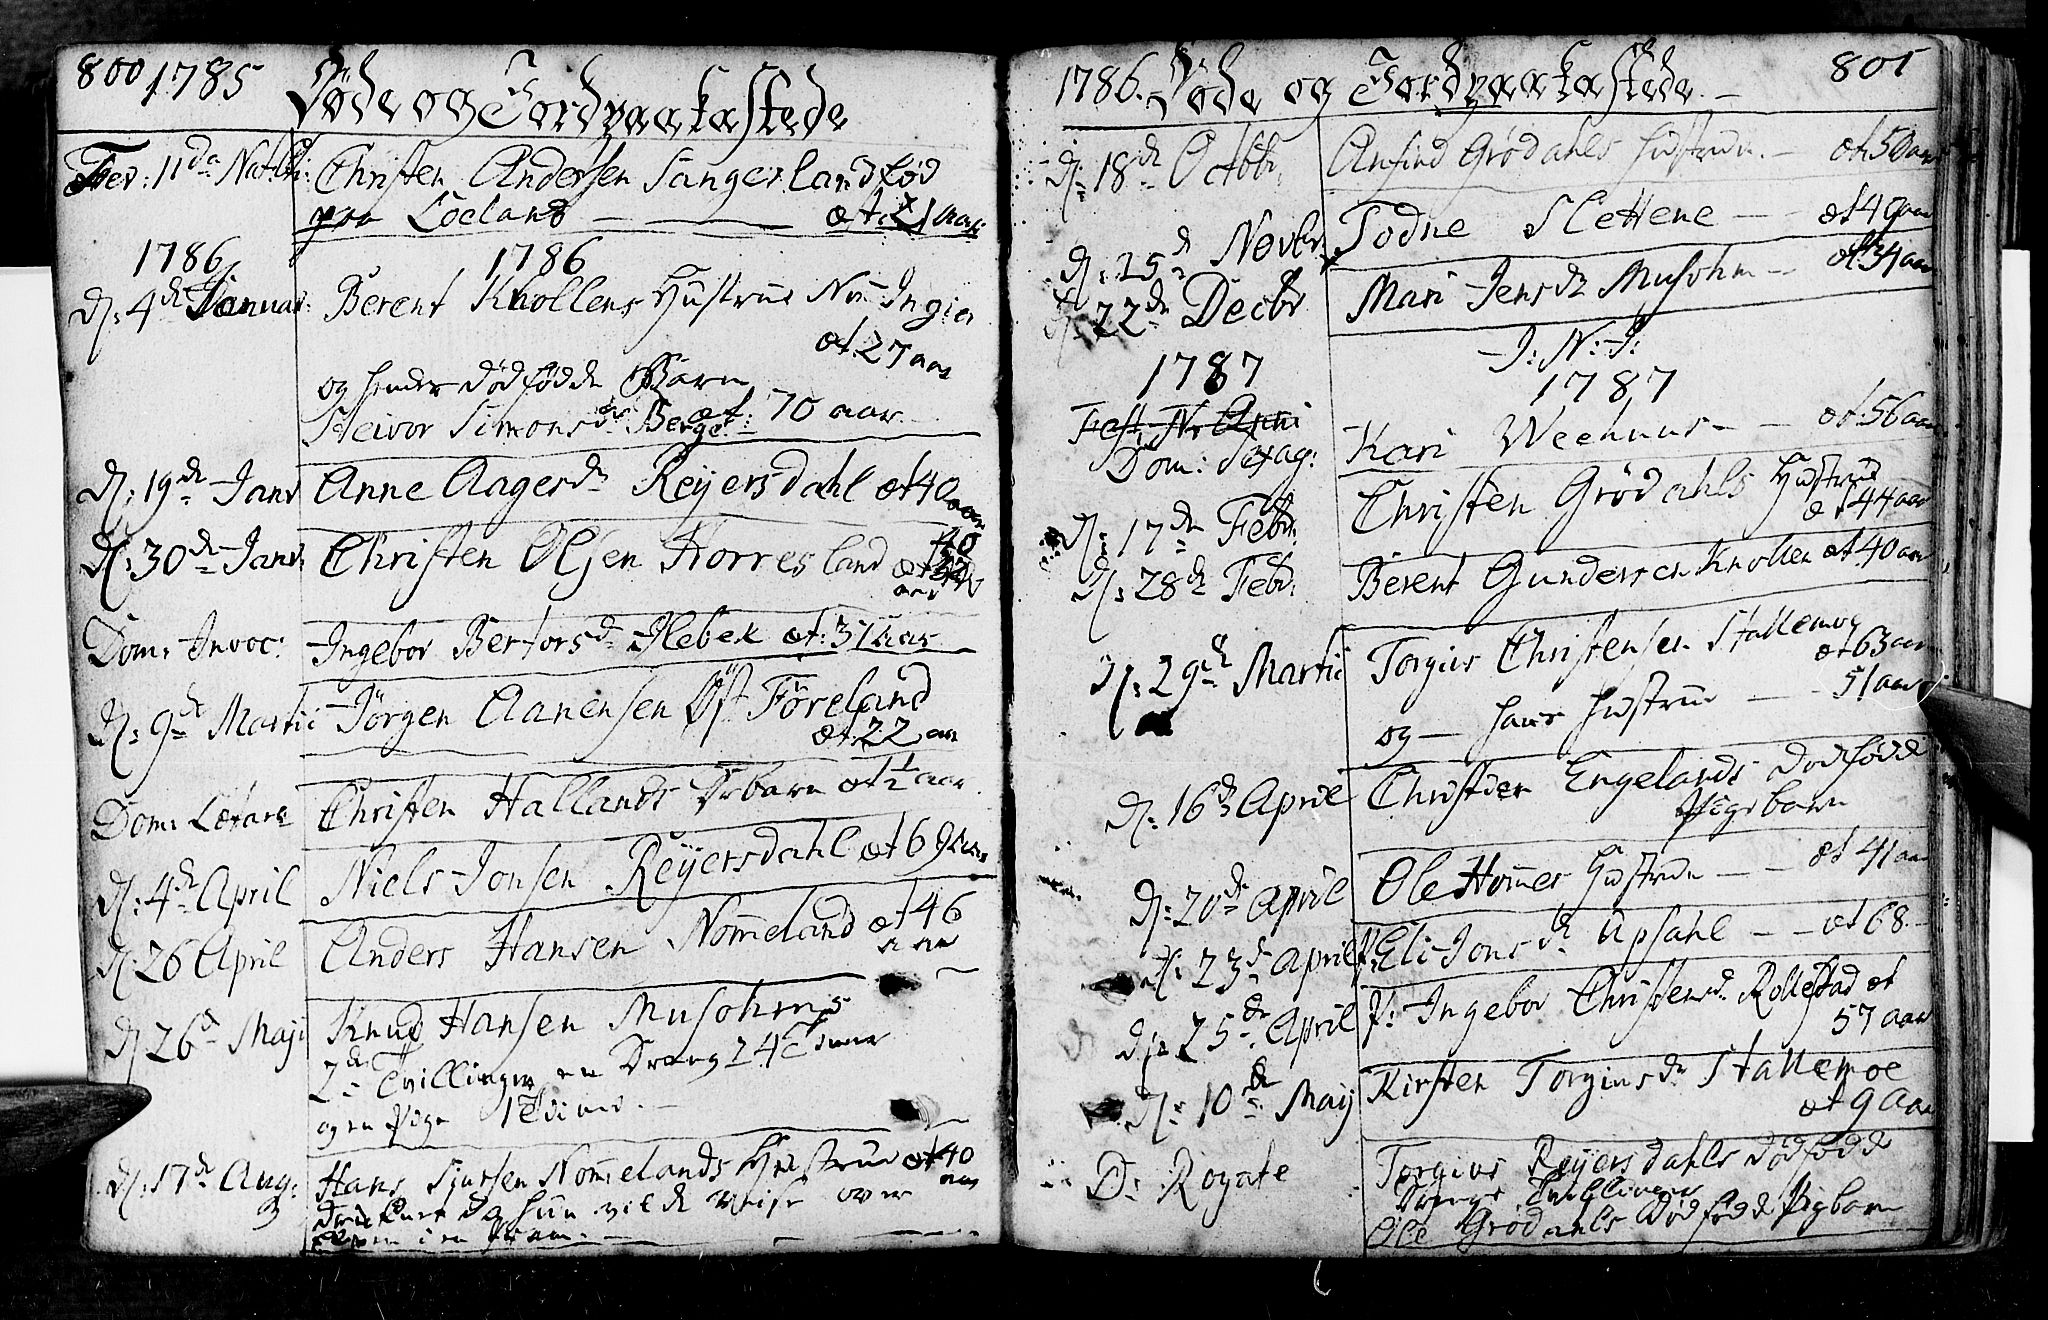 800 1785 Døde og Jordpaakastede
Fer: 11da Nat: Christen Andersen Langerland død
paa Loeland — æt: 21 aar
1786 1786
D: 4de Januar: Berent Knollens Hustrue Nom Inger
æt. 27 aar
og hendes dødfødde Barn
Steivor Simonsdr Berge æt: 70 aar
D: 19de Janr Anne Aagesdr Reyersdahl æt 40 aar
D: 30de Janr Christen Olsen Horresland æt 40
aar
Dom: Invoc: Ingebor Bertorsd Ilebek æt: 37 aar
D: 9de Martii Jörgen Aanensen Øst Föreland
æt. 22 aar
Dom: Lætare Christen Hallands Drbarn æt 1/2 aar
D: 4de April Niels Jonsen Reyersdahl æt 69 aar
D: 26 April Anders Hansen Nom̄eland æt 46
aar
D 26de Maji Knud Hansen Musohms
2de Tvillinger en Dreng 24 Timer
og en Pige 1 Time.
D: 17de Aug: Hans Sjursen Nom̄elands Hustrue æt 40
aar
druknet da hun vilde reise over
Aaen i en Pram.
1786. Døde og Jordpaakastede 801
D: 18de Octobr Anfind Grödahls Hustrue — æt. 50 aar
D: 25de Novbr Todne Slettene — æt 40 aar
D: 22de Decbr Mari Jensdr Musohm — æt. 34 aar
1787 J: N: J:
1787
Fest: Dom: Sexag: Kari Weehuus — æt. 56 aar
D: 17de Febr: Christen Grödahls Hustrue
æt 44 aar
D: 28de Febr: Berent Gundersen Knollen æt. 40 aar
D: 29de Martii Torgius Christensen Stallemog
æt 63 aar
og hans Hustrue — 51 aar
D: 16de April Christen Engelands dødfødde
Pigebarn
D: 20de April Ole Hom̄es Hustrue — æt 41 aar
D: 23de April Eli Jonsdr Upsahl — æt 68.
D: 25de April Ingebor Christensd Rollestad æt
57 aar
D: 10de Maij Kirsten Torgiusdr Stallemoe
æt 9 aar
D: Rogate Torgius Reyersdahls dödfødde
Drenge Tvillinger
Ole Grödahls dødfødde Pigebarn